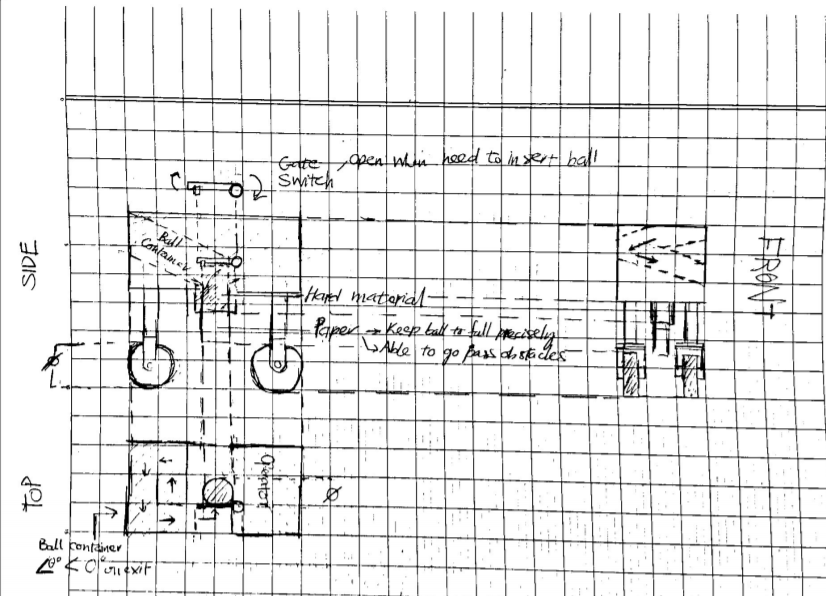 Gate , open when need to insert ball
Switch
SIDE
Ball
Container
FRONT
Hard material
Paper → Keep ball to fall precisely
↳ Able to go pass obstacles
Ø
TOP
Ø
Ball container
∠θ° < 0° on exit